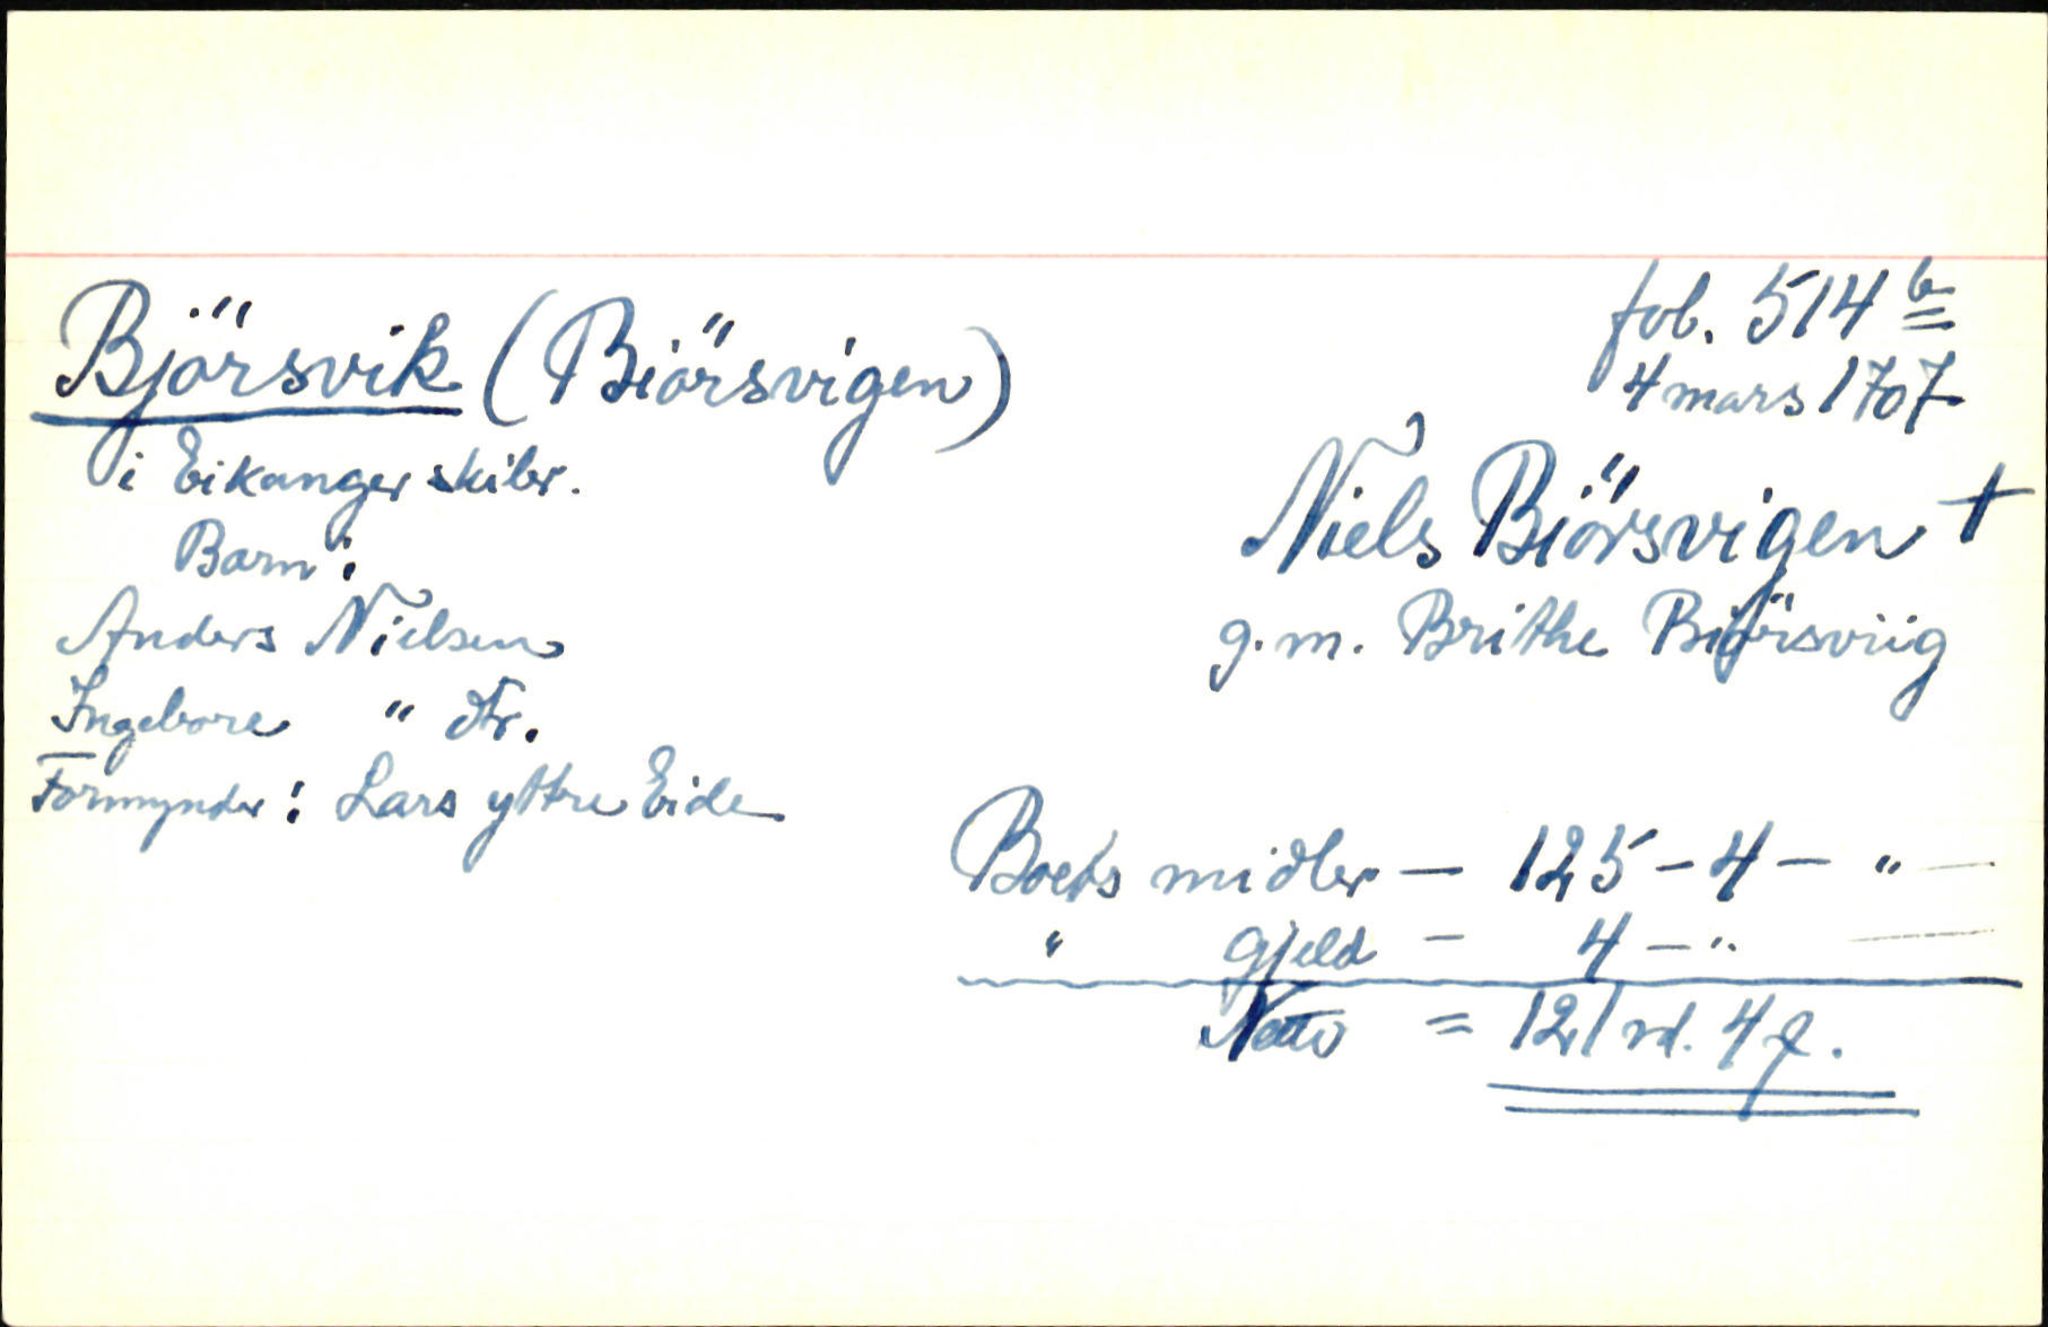 Björsvik (Biörsvigen)
i Eikanger skibr.
Barn:
Anders Nielsen
Ingebore " dtr.
Formynder: Lars yttre Eide
fol. 514 b
4 mars 1707
Niels Biörsvigen †
g. m. Brithe Biörsviig
Boets midler — 125 - 4 - " —
" gjeld - 4 - " —
Netto = 121 rd. 4